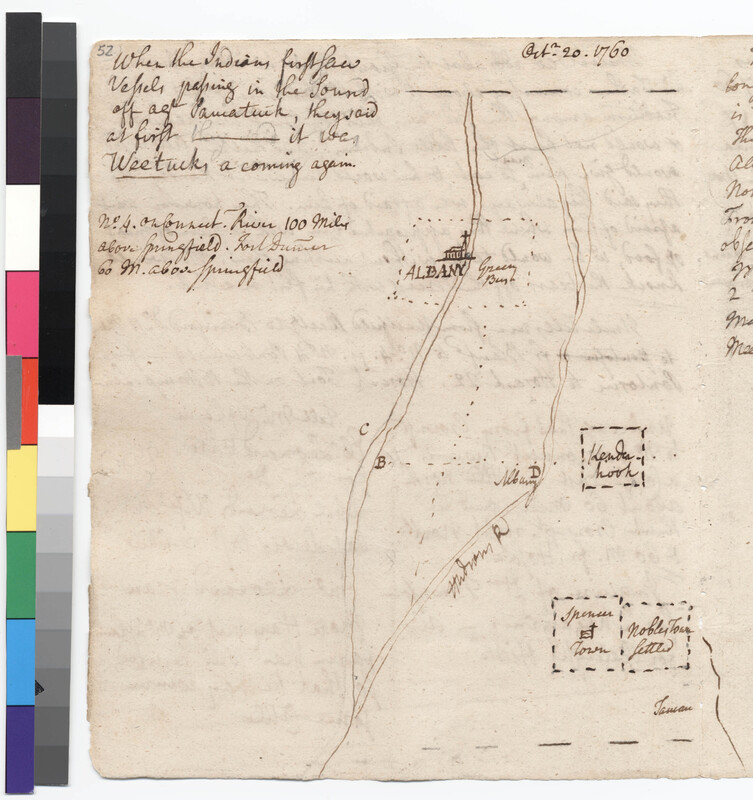 52
When the Indians first saw
Vessels passing in the Sound
off agt Pawcatuck, they said
at first it was
Weetucks a coming again.
No. 4. on Connect. River 100 Miles
above Springfield. Fort Dummer
60 M. above Springfield
Octr. 20. 1760
ALBANY
Green
Bush
C
B
D
Albany
Hudsons R
Kender
hook
Spencer
Town
Nobles Town
settled
Tawau
bon
is
The
Al
Nor
From
obse
M
2
Mo
Mea